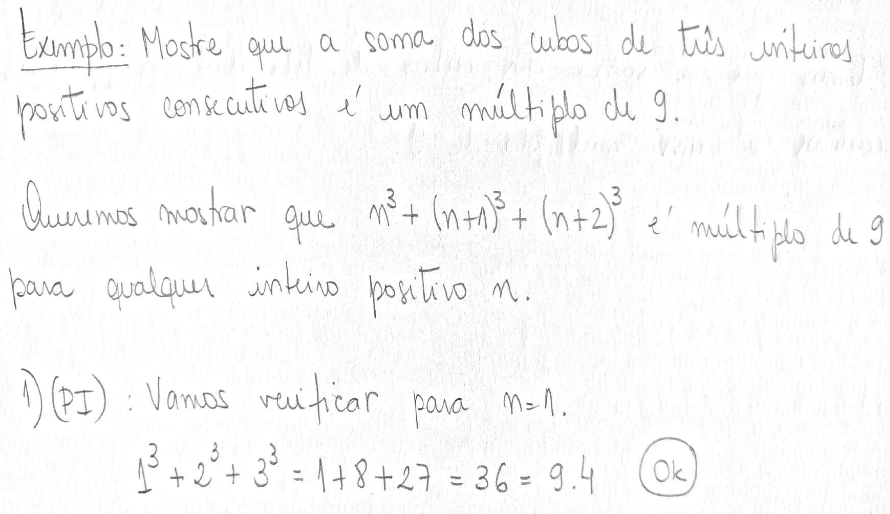 Exemplo: Mostre que a soma dos cubos de três inteiros
positivos consecutivos é um múltiplo de 9.
Queremos mostrar que n³ + (n+1)³ + (n+2)³ é múltiplo de 9
para qualquer inteiro positivo n.
1) (PI) : Vamos verificar para n=1.
1³ + 2³ + 3³ = 1+8+27 = 36 = 9.4 Ok